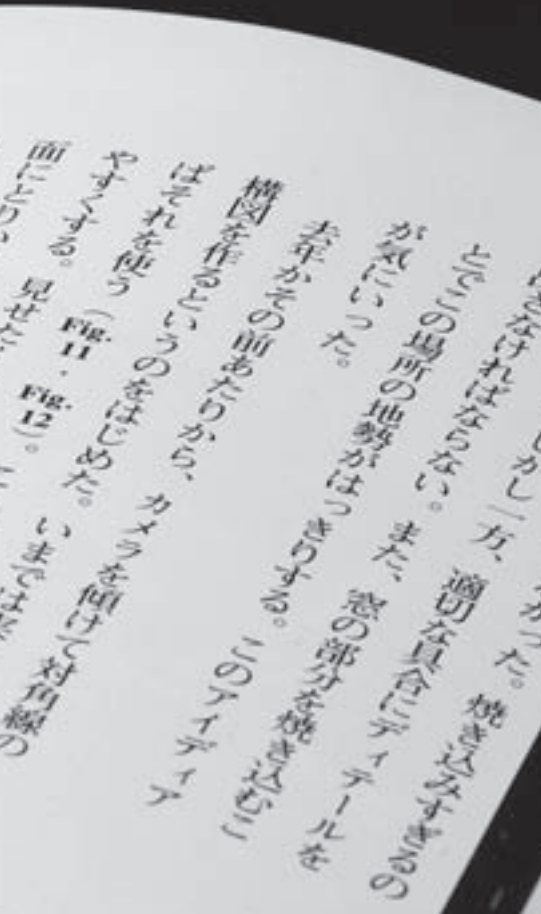 かった。焼き込みすぎるの
しかし一方、適切な具合にディテールを
なければならない。また、窓の部分を焼き込むこ
とでこの場所の地勢がはっきりする。このアイディア
が気にいった。
去年かその前あたりから、カメラを傾けて対角線の
構図を作るというのをはじめた。いまでは
ばそれを使う（Fig. 11・Fig. 12）。
やすくする。見せた
面にとりい